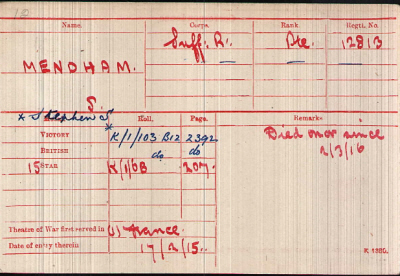 Name.
Corps.
Rank.
Regtl. No.
MENDHAM.
Suff. R.
Pte.
12813
S.
* Stephen S
Roll.
Page.
Remarks.
VICTORY
* K/1/103 B12
2392
Died on or since
2/3/16
BRITISH
do
do
15 STAR
K/1/6B
207.
Theatre of War first served in
(1) France.
Date of entry therein
17/2/15.
K 1380.